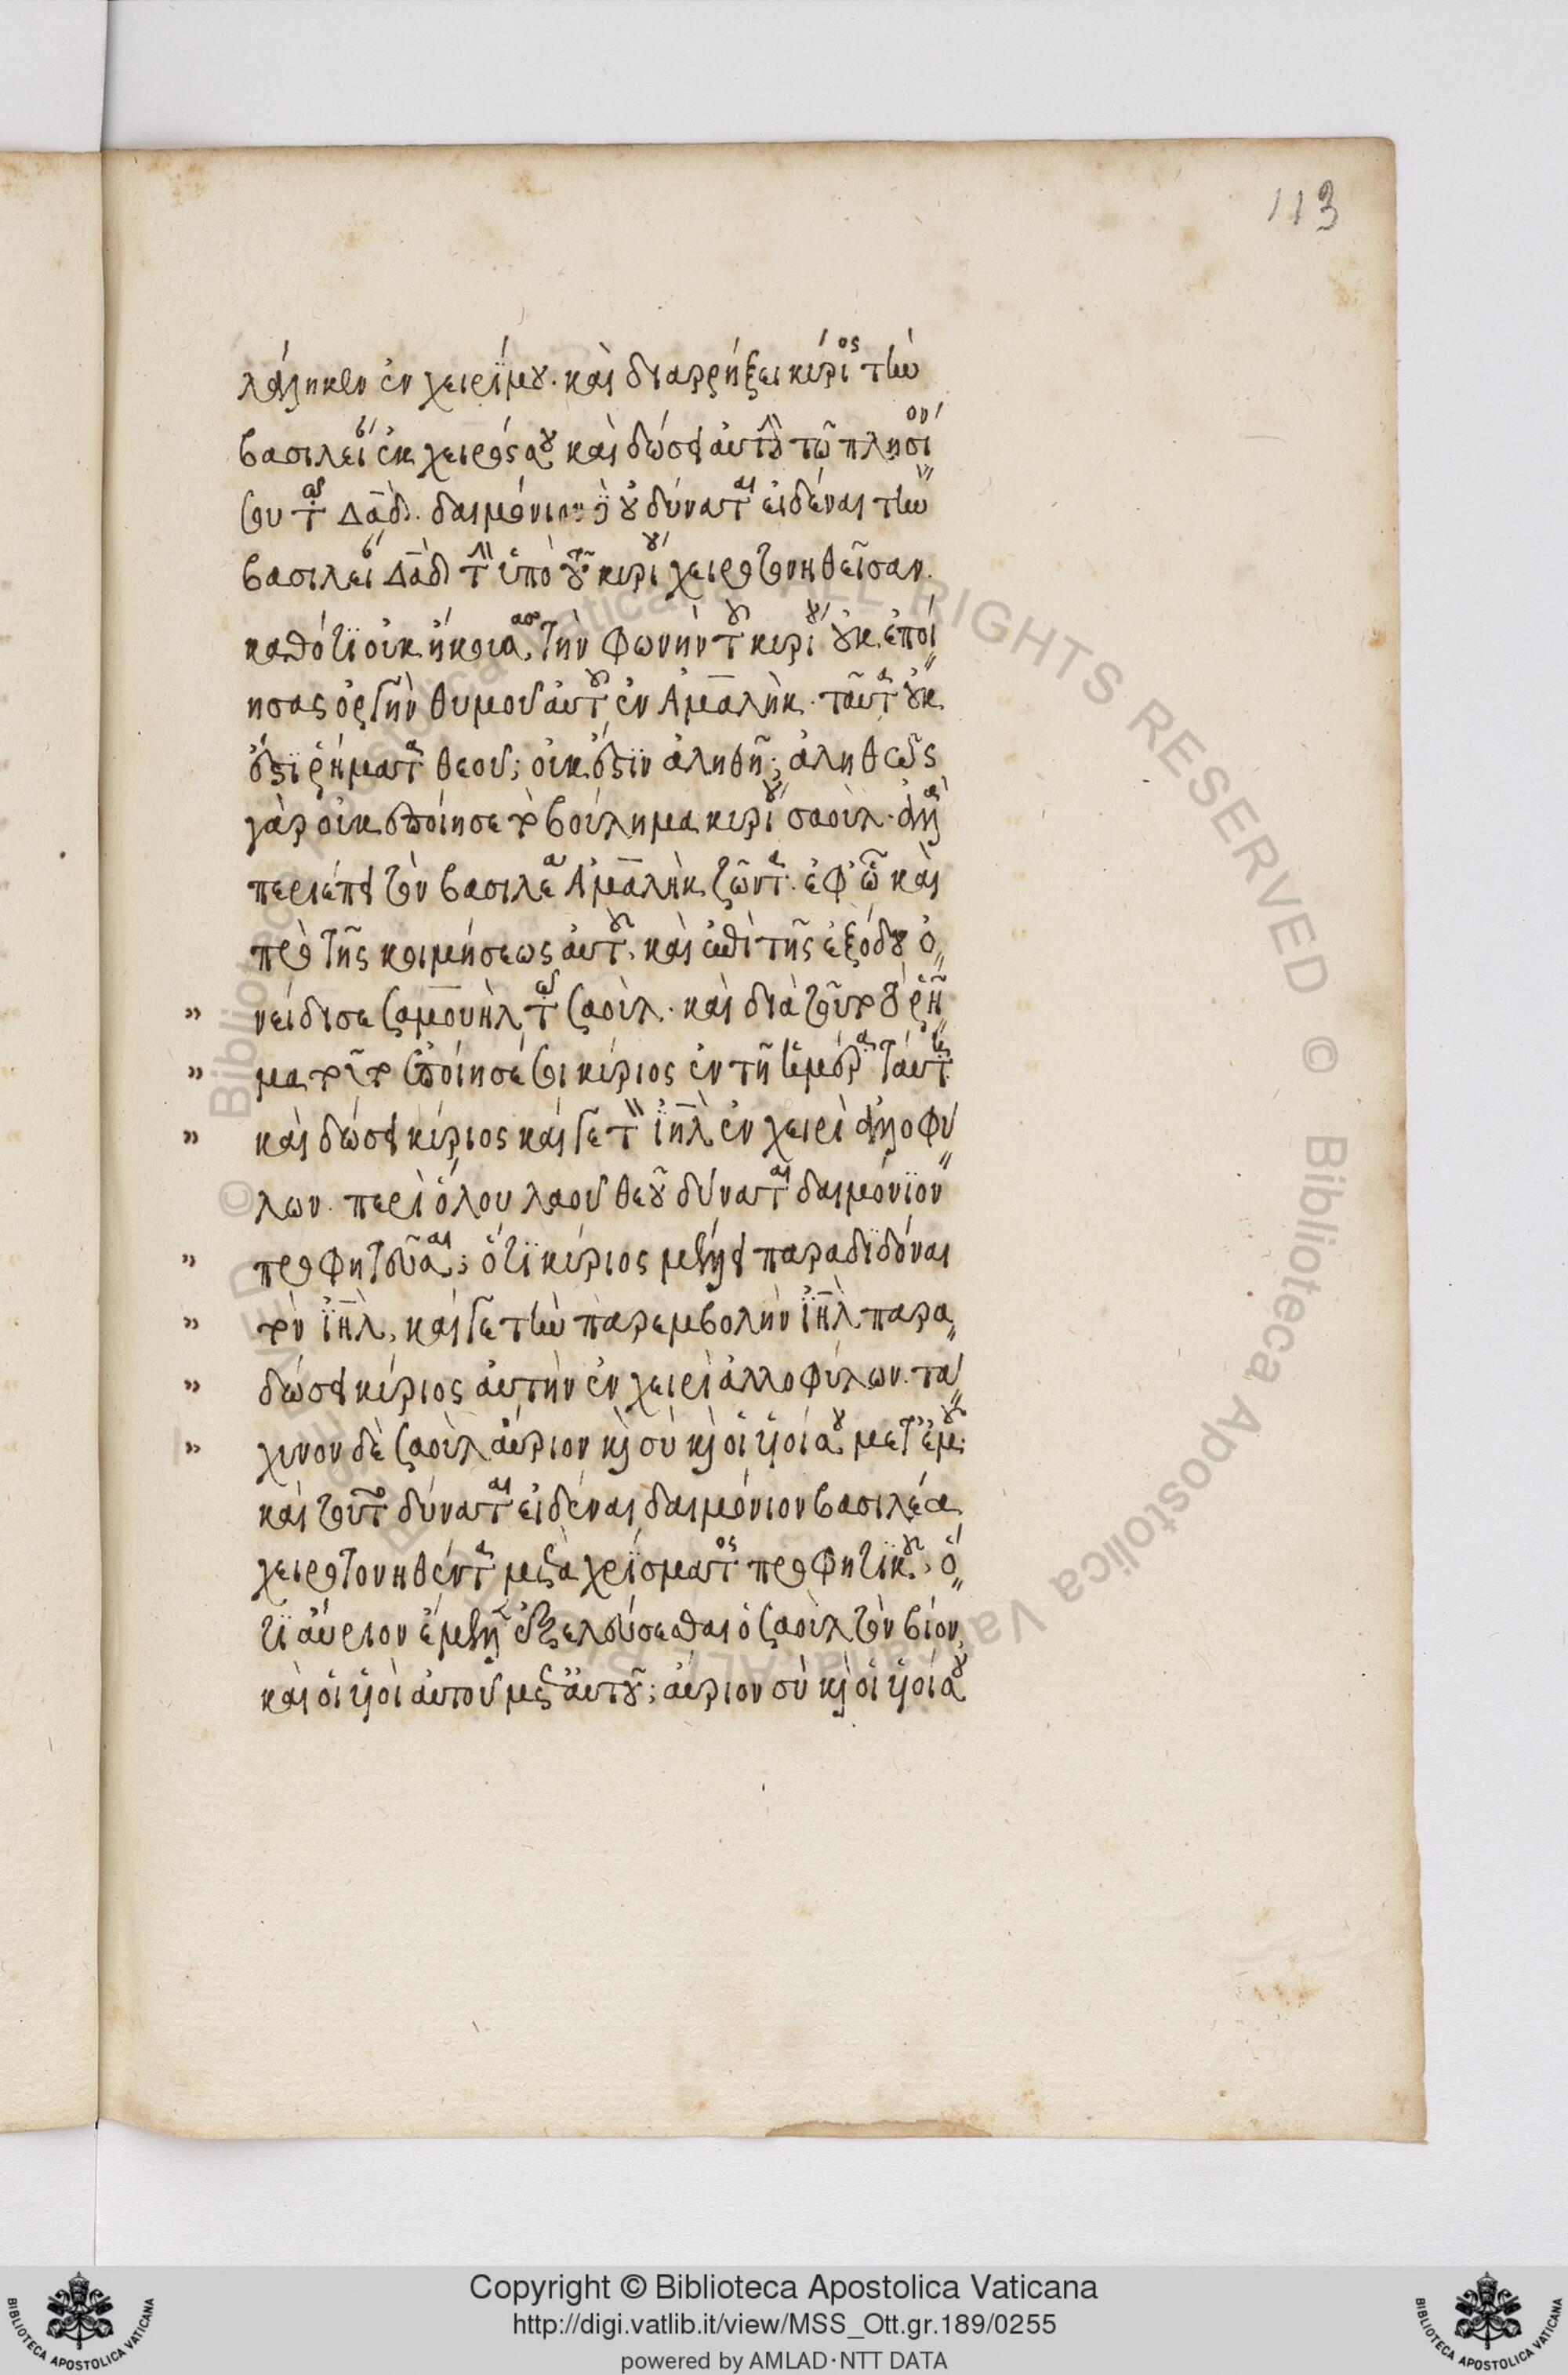 113
λάληκεν ἐν χειρί μου. καὶ διαρρήξει κύριος τὴν
βασιλείαν ἐκ χειρός σου καὶ δώσει αὐτὴν τῷ πλησίον
σου τῷ Δαδ. δαιμόνιον οὐ δύναται εἰδέναι τὴν
βασιλείαν Δαδ τὴν ὑπὸ τοῦ κυρίου χειροτονηθεῖσαν.
καθότι οὐκ ἤκουσας τὴν φωνὴν τοῦ κυρίου οὐκ ἐποί
ησας ὀργὴν θυμοῦ αὐτοῦ ἐν Ἀμαλὴκ. ταῦτα οὐκ
ἔστι ῥήματα θεοῦ; οὐκ ἔστιν ἀληθῆ; ἀληθῶς
γὰρ οὐκ ἐποίησε τὸ βούλημα κυρίου σαοὺλ. ἀλλὰ
τὸν βασιλέα Ἀμαλὴκ ζῶντα. ἐφ' ᾧ καὶ
πρὸ τῆς κοιμήσεως αὐτοῦ, καὶ ἐπὶ τῆς ἐξόδου ὀ
" νείδισε σαμουὴλ τῷ σαοὺλ. καὶ διὰ τοῦτο τὸ ῥῆ
" μα τοῦτο ἐποίησέ σοι κύριος ἐν τῇ ἡμέρᾳ ταύτῃ
" καὶ δώσει κύριος καί γε τὸν ἰηλ ἐν χειρὶ ἀλλοφύ
λων. περὶ ὅλου λαοῦ θεοῦ δύναται δαιμόνιον
" προφητεῦσαι; ὅτι κύριος μέλλει παραδιδόναι
" τὸν ἰηλ, καί γε τὴν παρεμβολὴν ἰηλ παρα
" δώσει κύριος αὐτὴν ἐν χειρὶ ἀλλοφύλων. τά
" χυνον δὲ σαοὺλ αὔριον καὶ σὺ καὶ οἱ υἱοί σου μετ' ἐμοῦ.
καὶ τοῦτο δύναται εἰδέναι δαιμόνιον βασιλέα
χειροτονηθέντα μετὰ χρίσματος προφητικοῦ. ὅ
τι αὔριον ἔμελλεν ἐξελεύσεσθαι ὁ σαοὺλ τὸν βίον,
καὶ οἱ υἱοὶ αὐτοῦ μετ' αὐτοῦ; αὔριον σὺ καὶ οἱ υἱοί σου
Copyright © Biblioteca Apostolica Vaticana
http://digi.vatlib.it/view/MSS_Ott.gr.189/0255
powered by AMLAD·NTT DATA